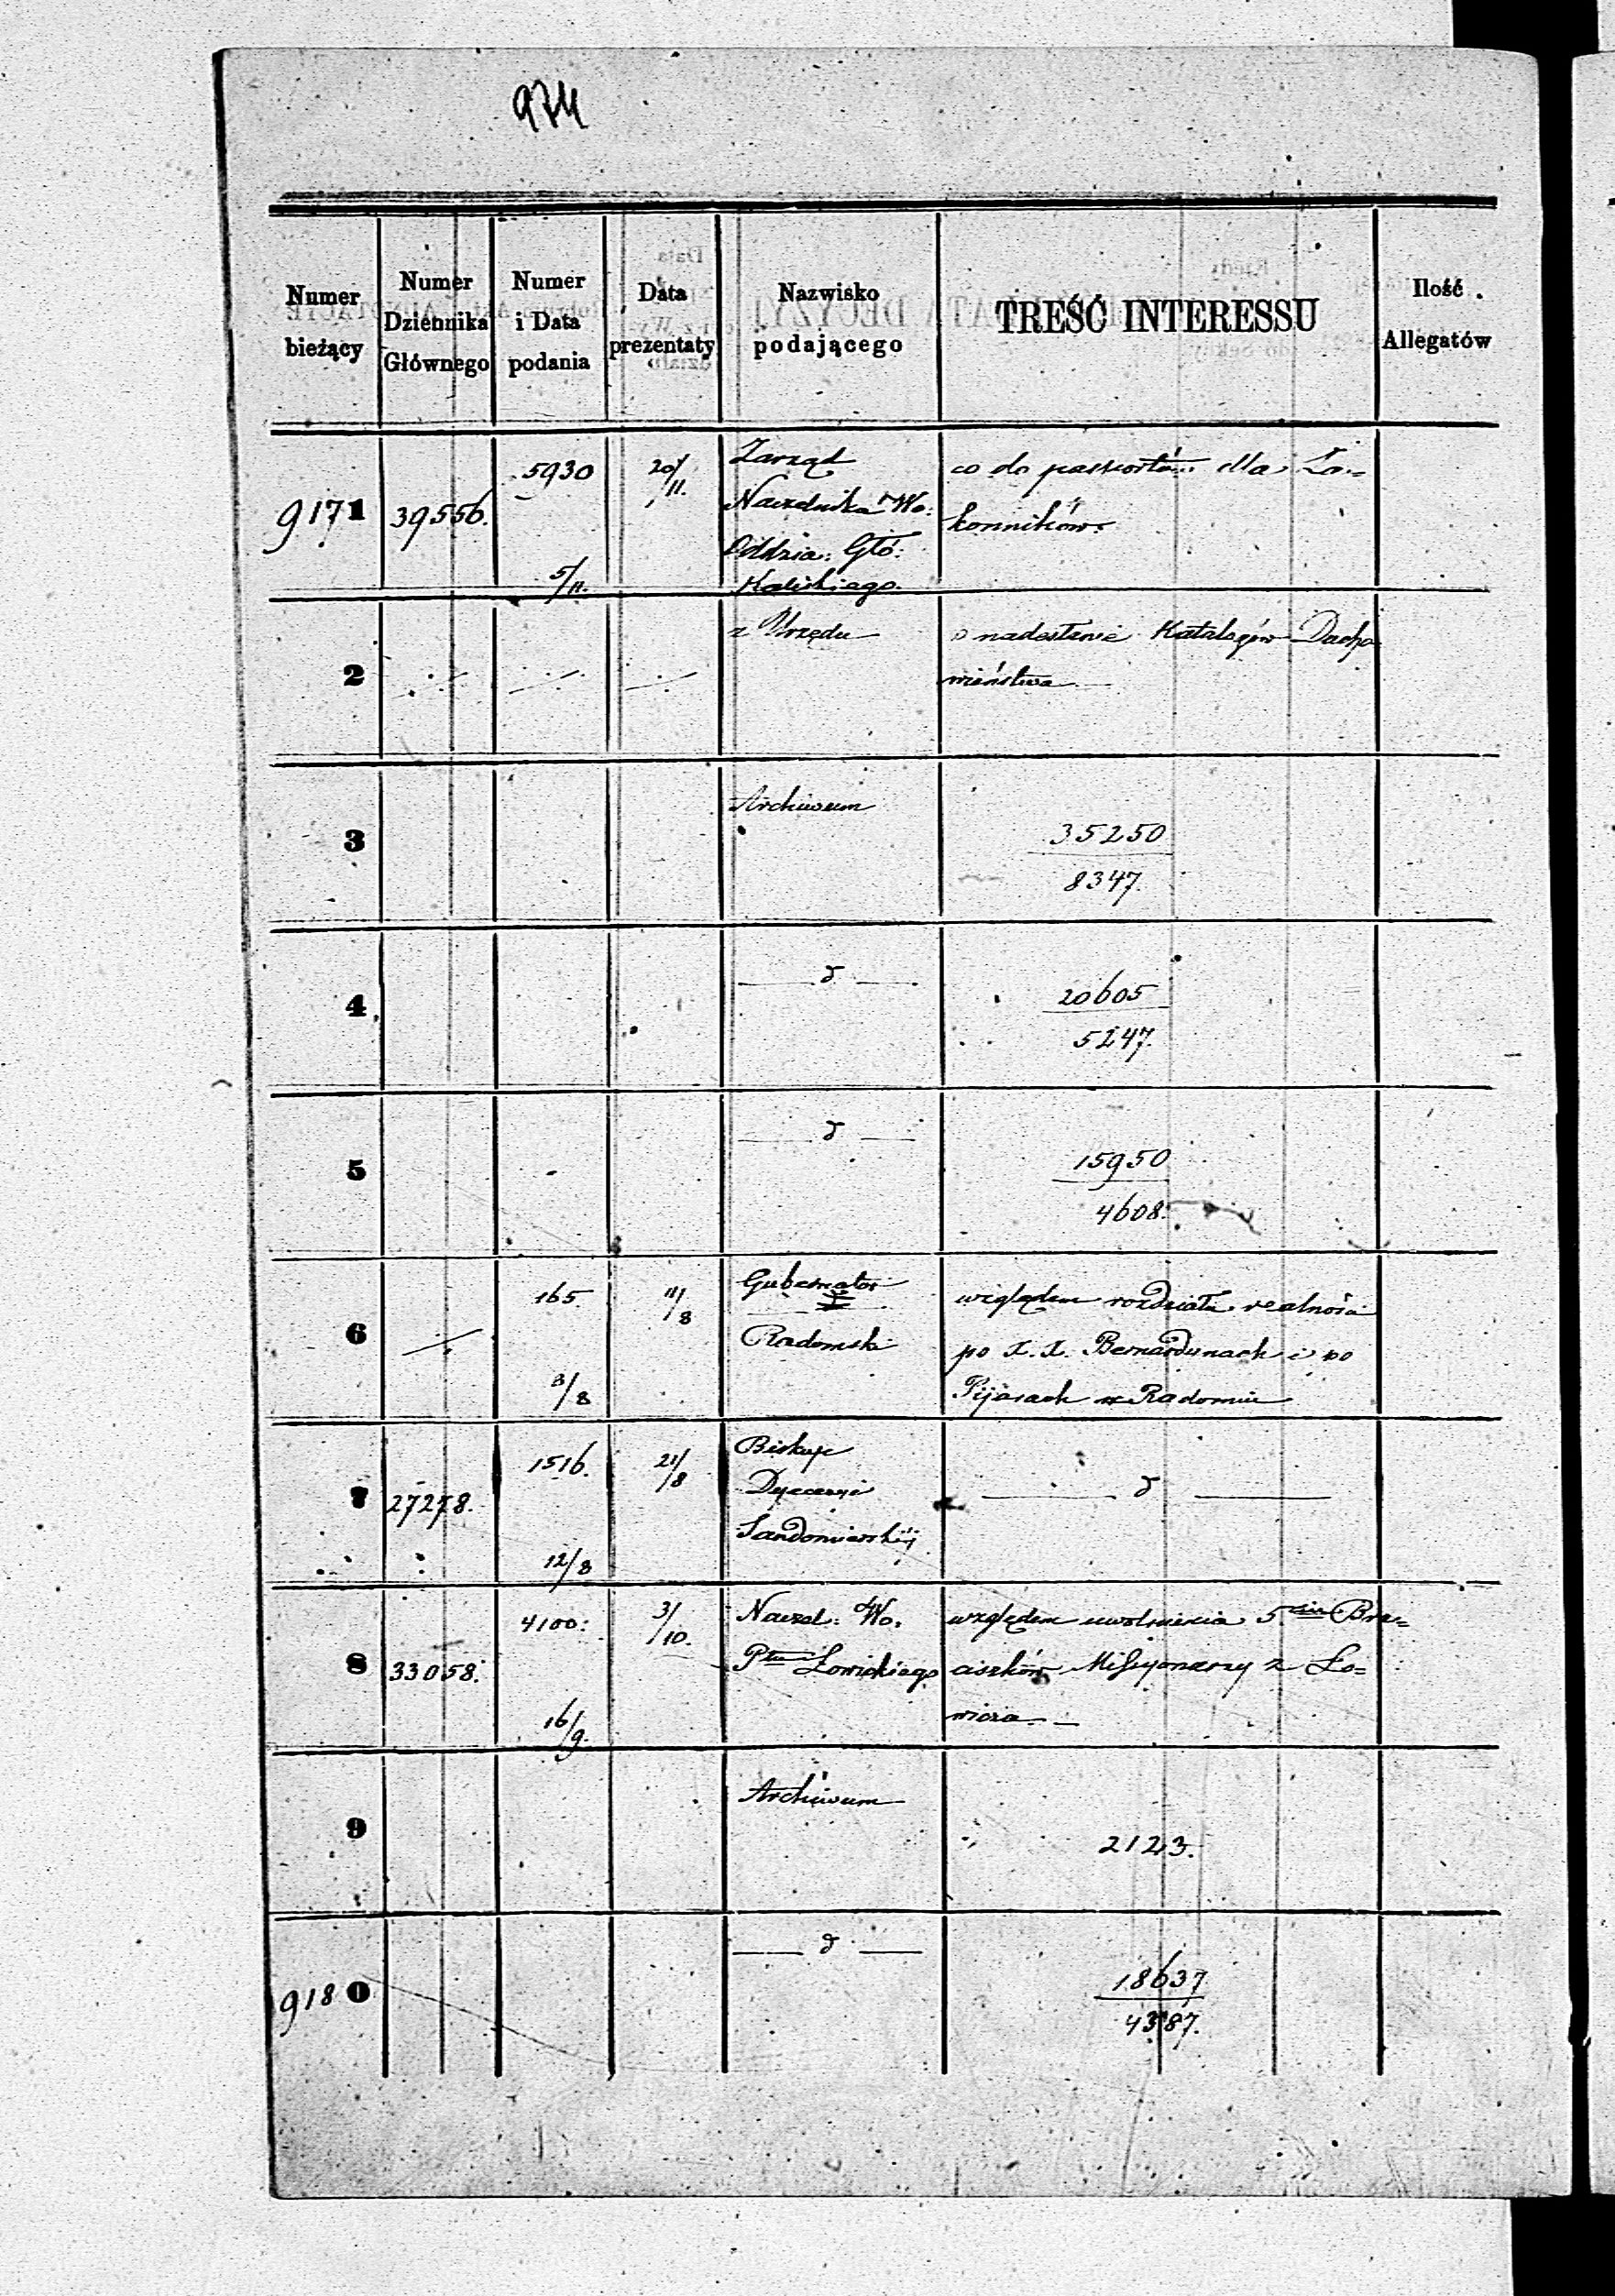 974
Numer bieżący
Numer Dziennika Głównego
Numer i Data podania
Data prezentaty
Nazwisko podającego
TREŚĆ INTERESSU
Ilość Allegatów
9171 39556. 5930 5/11. 20/11.
Zarząd
Naczelnika Wo:
Oddzia: Głó:
Kaliskiego.
co do passportów dla Za=
konników.
2 ·/· ·/· ·/·
z Urzędu
o nadesłanie Katalogów Ducho
wieństwa
3 Archiwum
35250
8347.
4 — d —
20605
5247.
5 — d —
15950
4608.
6 ·/· 165. 3/8 11/8
Gubernator
Radomski
względem rozdziału realności
po X.X. Bernardynach i po
Pijarach w Radomiu
7 27278. 1516. 12/8 21/8
Biskup
Dyecezyi
Sandomierskiéj
— d —
8 33058. 4100: 16/9. 3/10.
Naczel: Wo.
Ptu Łowickiego
względem uwolnienia 5ciu Bra=
ciszków Missyonarzy z Ło=
wicza.
9 Archiwum
2123.
9180 — d —
18637
4387.